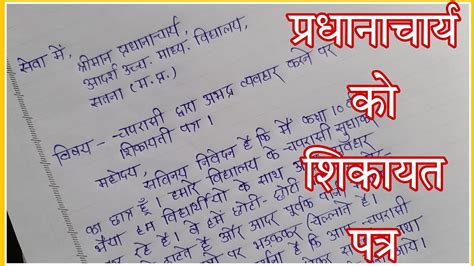 सेवा में,
श्रीमान प्रधानाचार्य,
आदर्श उच्च. माध्य. विद्यालय,
सतना (म.प्र.)
विषय - -चपरासी द्वारा अभद्र व्यवहार करने पर
शिकायती पत्र ।
महोदय,
सविनय निवेदन है कि मैं कक्षा 10 वी
का छात्र हूँ। हमारे विद्यालय के चपरासी सुधाकर
भैया हम विद्यार्थीयों के साथ
कर रहे हैं। वे हमें छोटी- छोटी
डाटते हैं और आदर पूर्वक
पर भड़ककर चिल्लाते हैं।
है कि आप -चपरासी
प्रधानाचार्य
को
शिकायत
पत्र